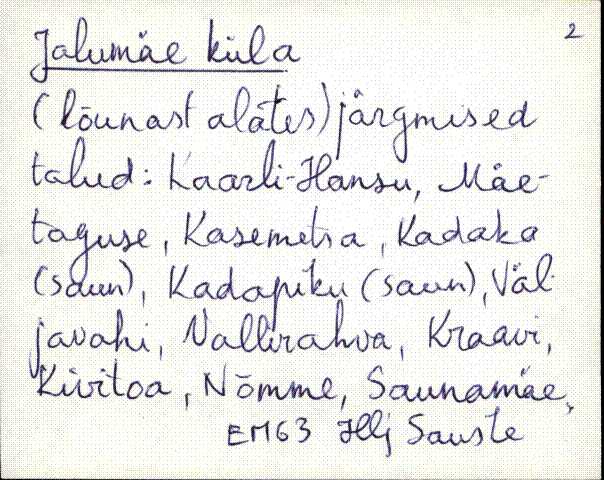 2
Jalumäe küla
(lõunast alates) järgmised
talud: Kaarli-Hansu, Mäe-
taguse, Kasemetsa, Kadaka
(saun), Kadapiku (saun), Väl-
javahi, Vallirahva, Kraavi,
Kivitoa, Nõmme, Saunamäe,
EM63 Illj Sauste